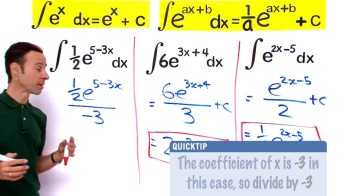 ∫eˣ dx = eˣ + c
∫eᵃˣ⁺ᵇ dx = 1/a eᵃˣ⁺ᵇ + c
∫ 1/2 e⁵⁻³ˣ dx
1/2 e⁵⁻³ˣ / -3
∫ 6e³ˣ⁺⁴ dx
= 6e³ˣ⁺⁴ / 3 + c
∫ e²ˣ⁻⁵ dx
= e²ˣ⁻⁵ / 2 + c
QUICKTIP
The coefficient of x is -3 in
this case, so divide by -3